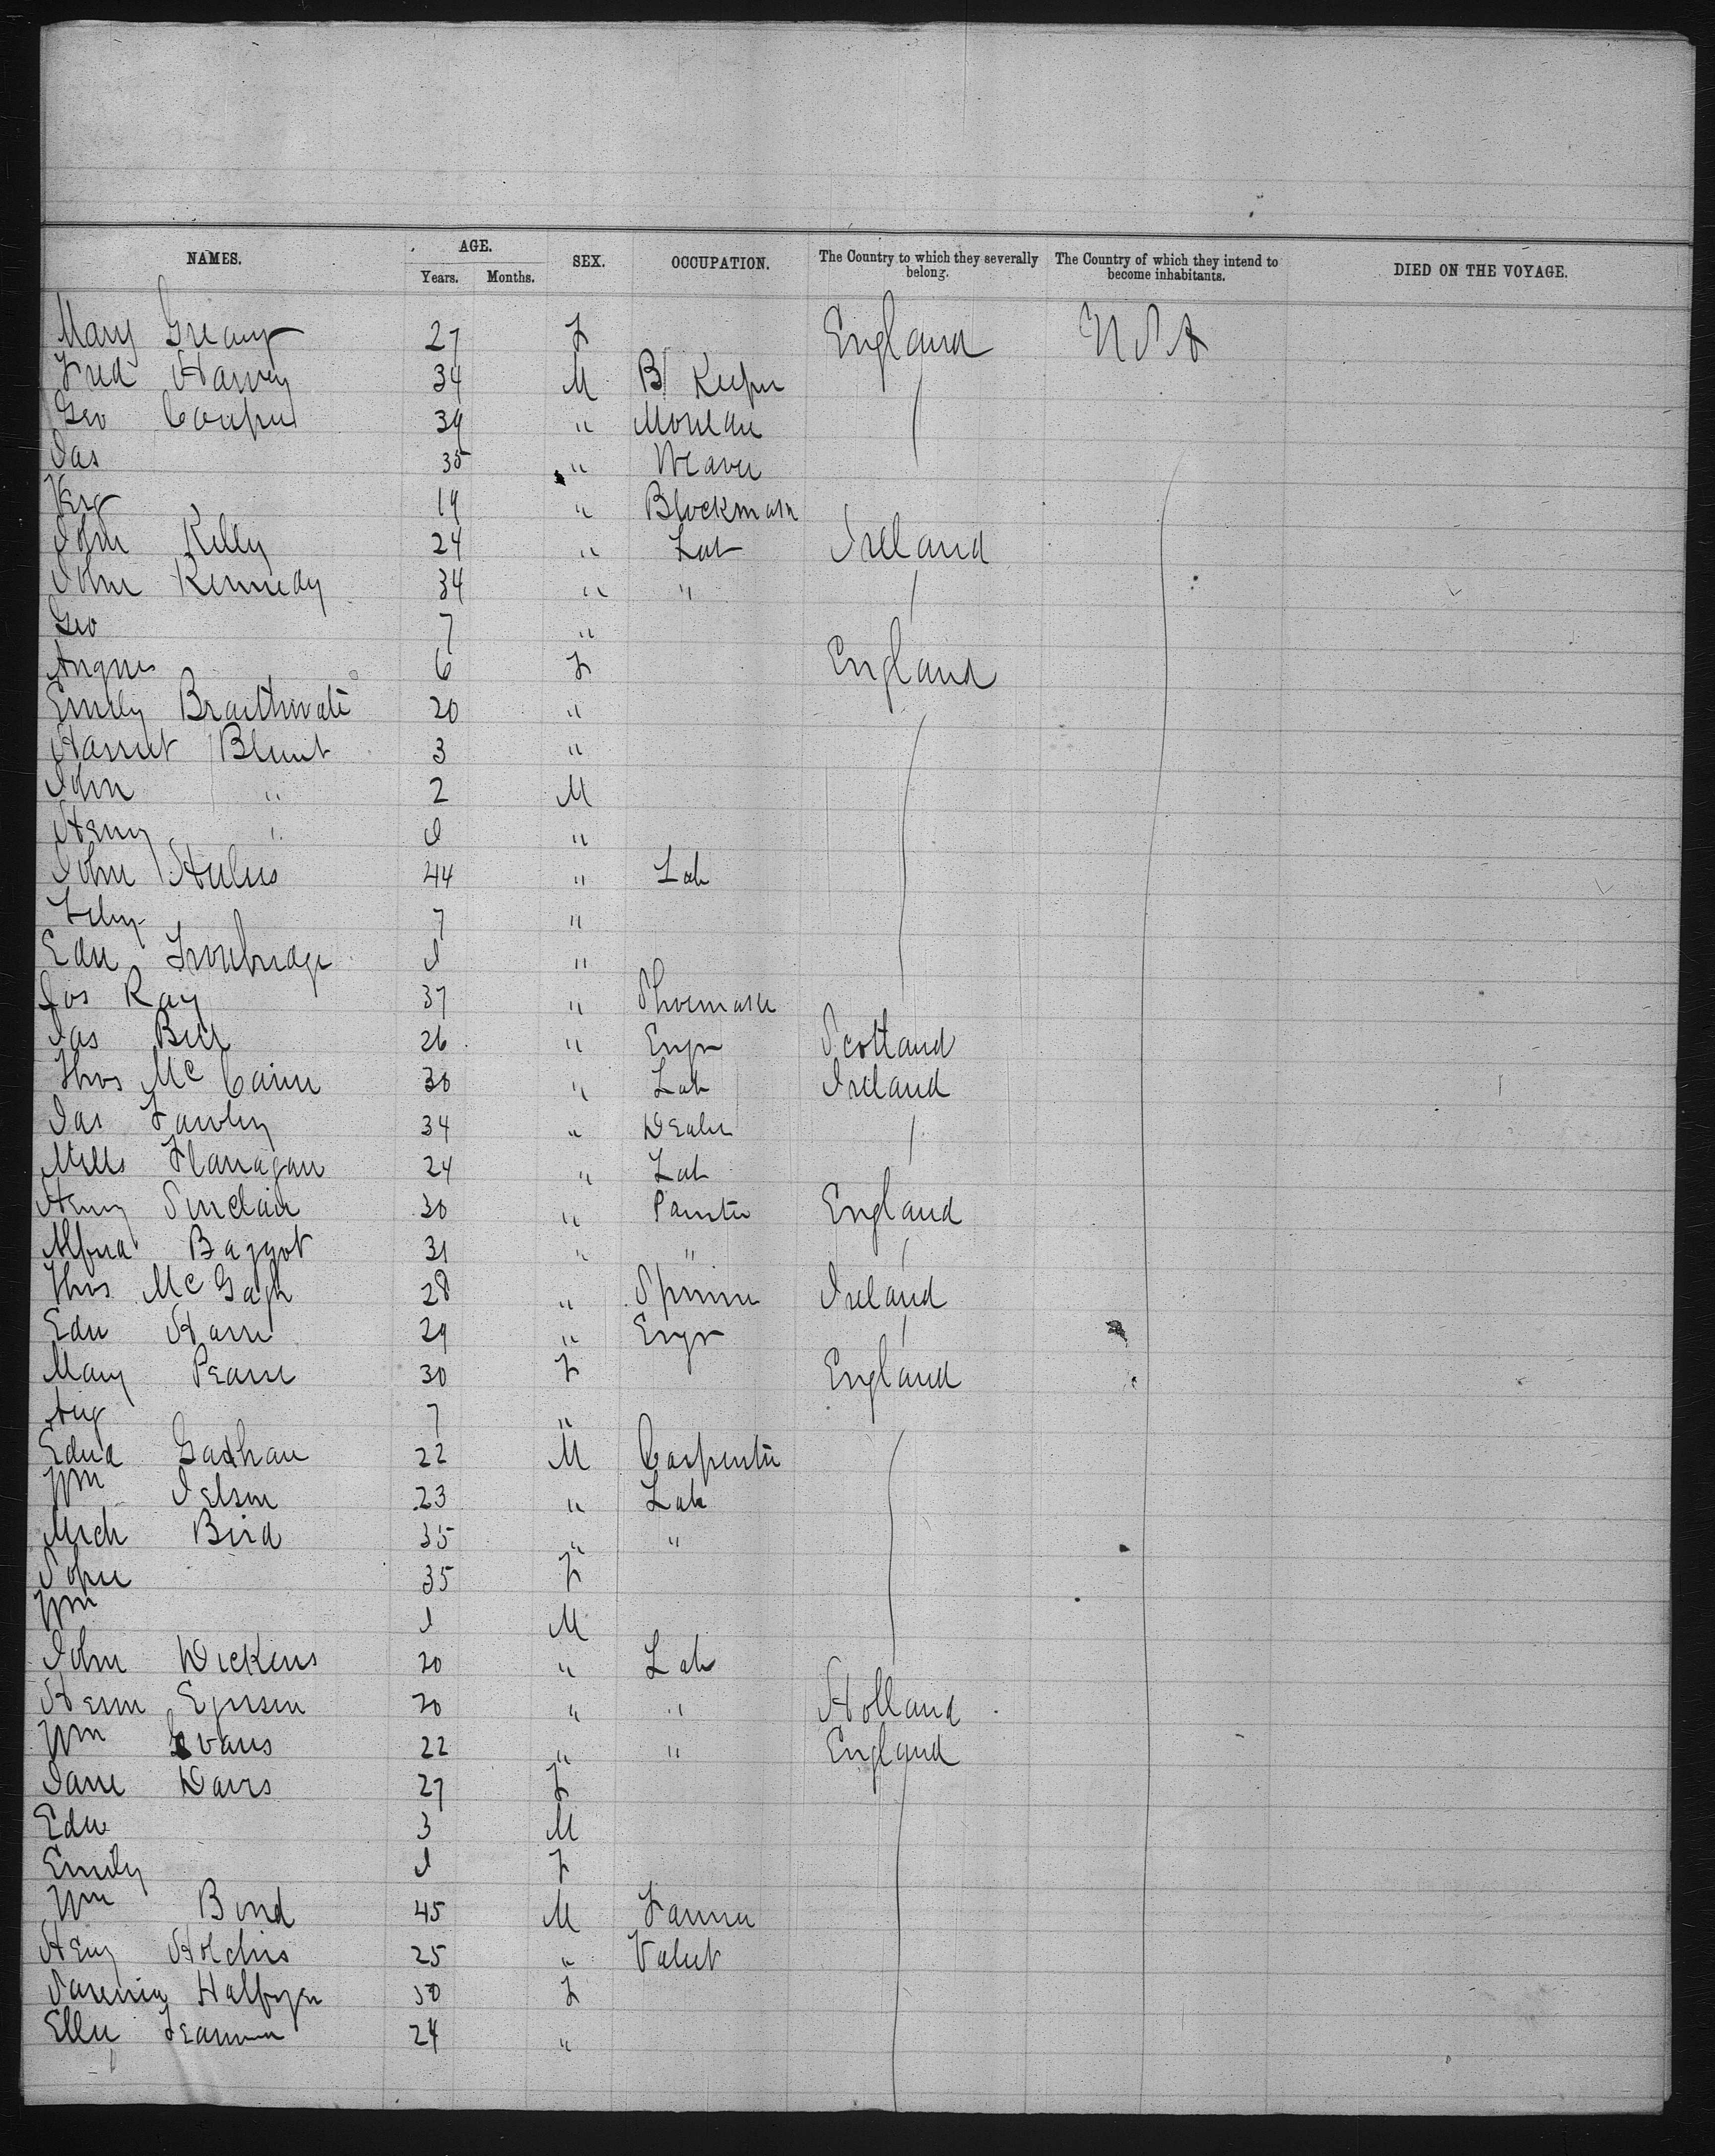 NAMES. AGE. Years. Months. SEX. OCCUPATION. The Country to which they severally belong. The Country of which they intend to become inhabitants. DIED ON THE VOYAGE.
Mary 27 F England USA
Fred Harvey 34 M B/ Keeper
Geo Cooper 39 "
Jas 35 " Weaver
19 " Blockman
John Kelly 24 " Lab Ireland
John Kennedy 34 " "
Geo 7 "
Angnes 6 F England
Emily Braithwate 20 "
Harriet Blunt 3 "
John " 2 M
Henry " 1 "
John 44 " Lab
7 "
Edw Trowbridge 1 "
Jos Ray 37 " Shoemaker
Jas Bell 26 " Engr Scotland
Thos Mc Cann 30 " Lab Ireland
Jas Fawley 34 " Dealer
Flanagan 24 " Lab
Henry Sinclair 30 " Painter England
Alfred Baggot 31 " "
Thos Mc Gagh 28 " Spinner Ireland
Edw 29 " Engr
Mary Pearse 30 F England
7 "
Edwd 22 M Carpenter
Wm 23 " Lab
Mich Bird 35 " "
35 F
Wm 1 M
John Dickens 20 " Lab
20 " " Holland
Wm Evans 22 " " England
Jane Davis 27 F
Edw 3 M
Emily 1 F
Wm Bond 45 M Farmer
25 " Valet
F
24 "